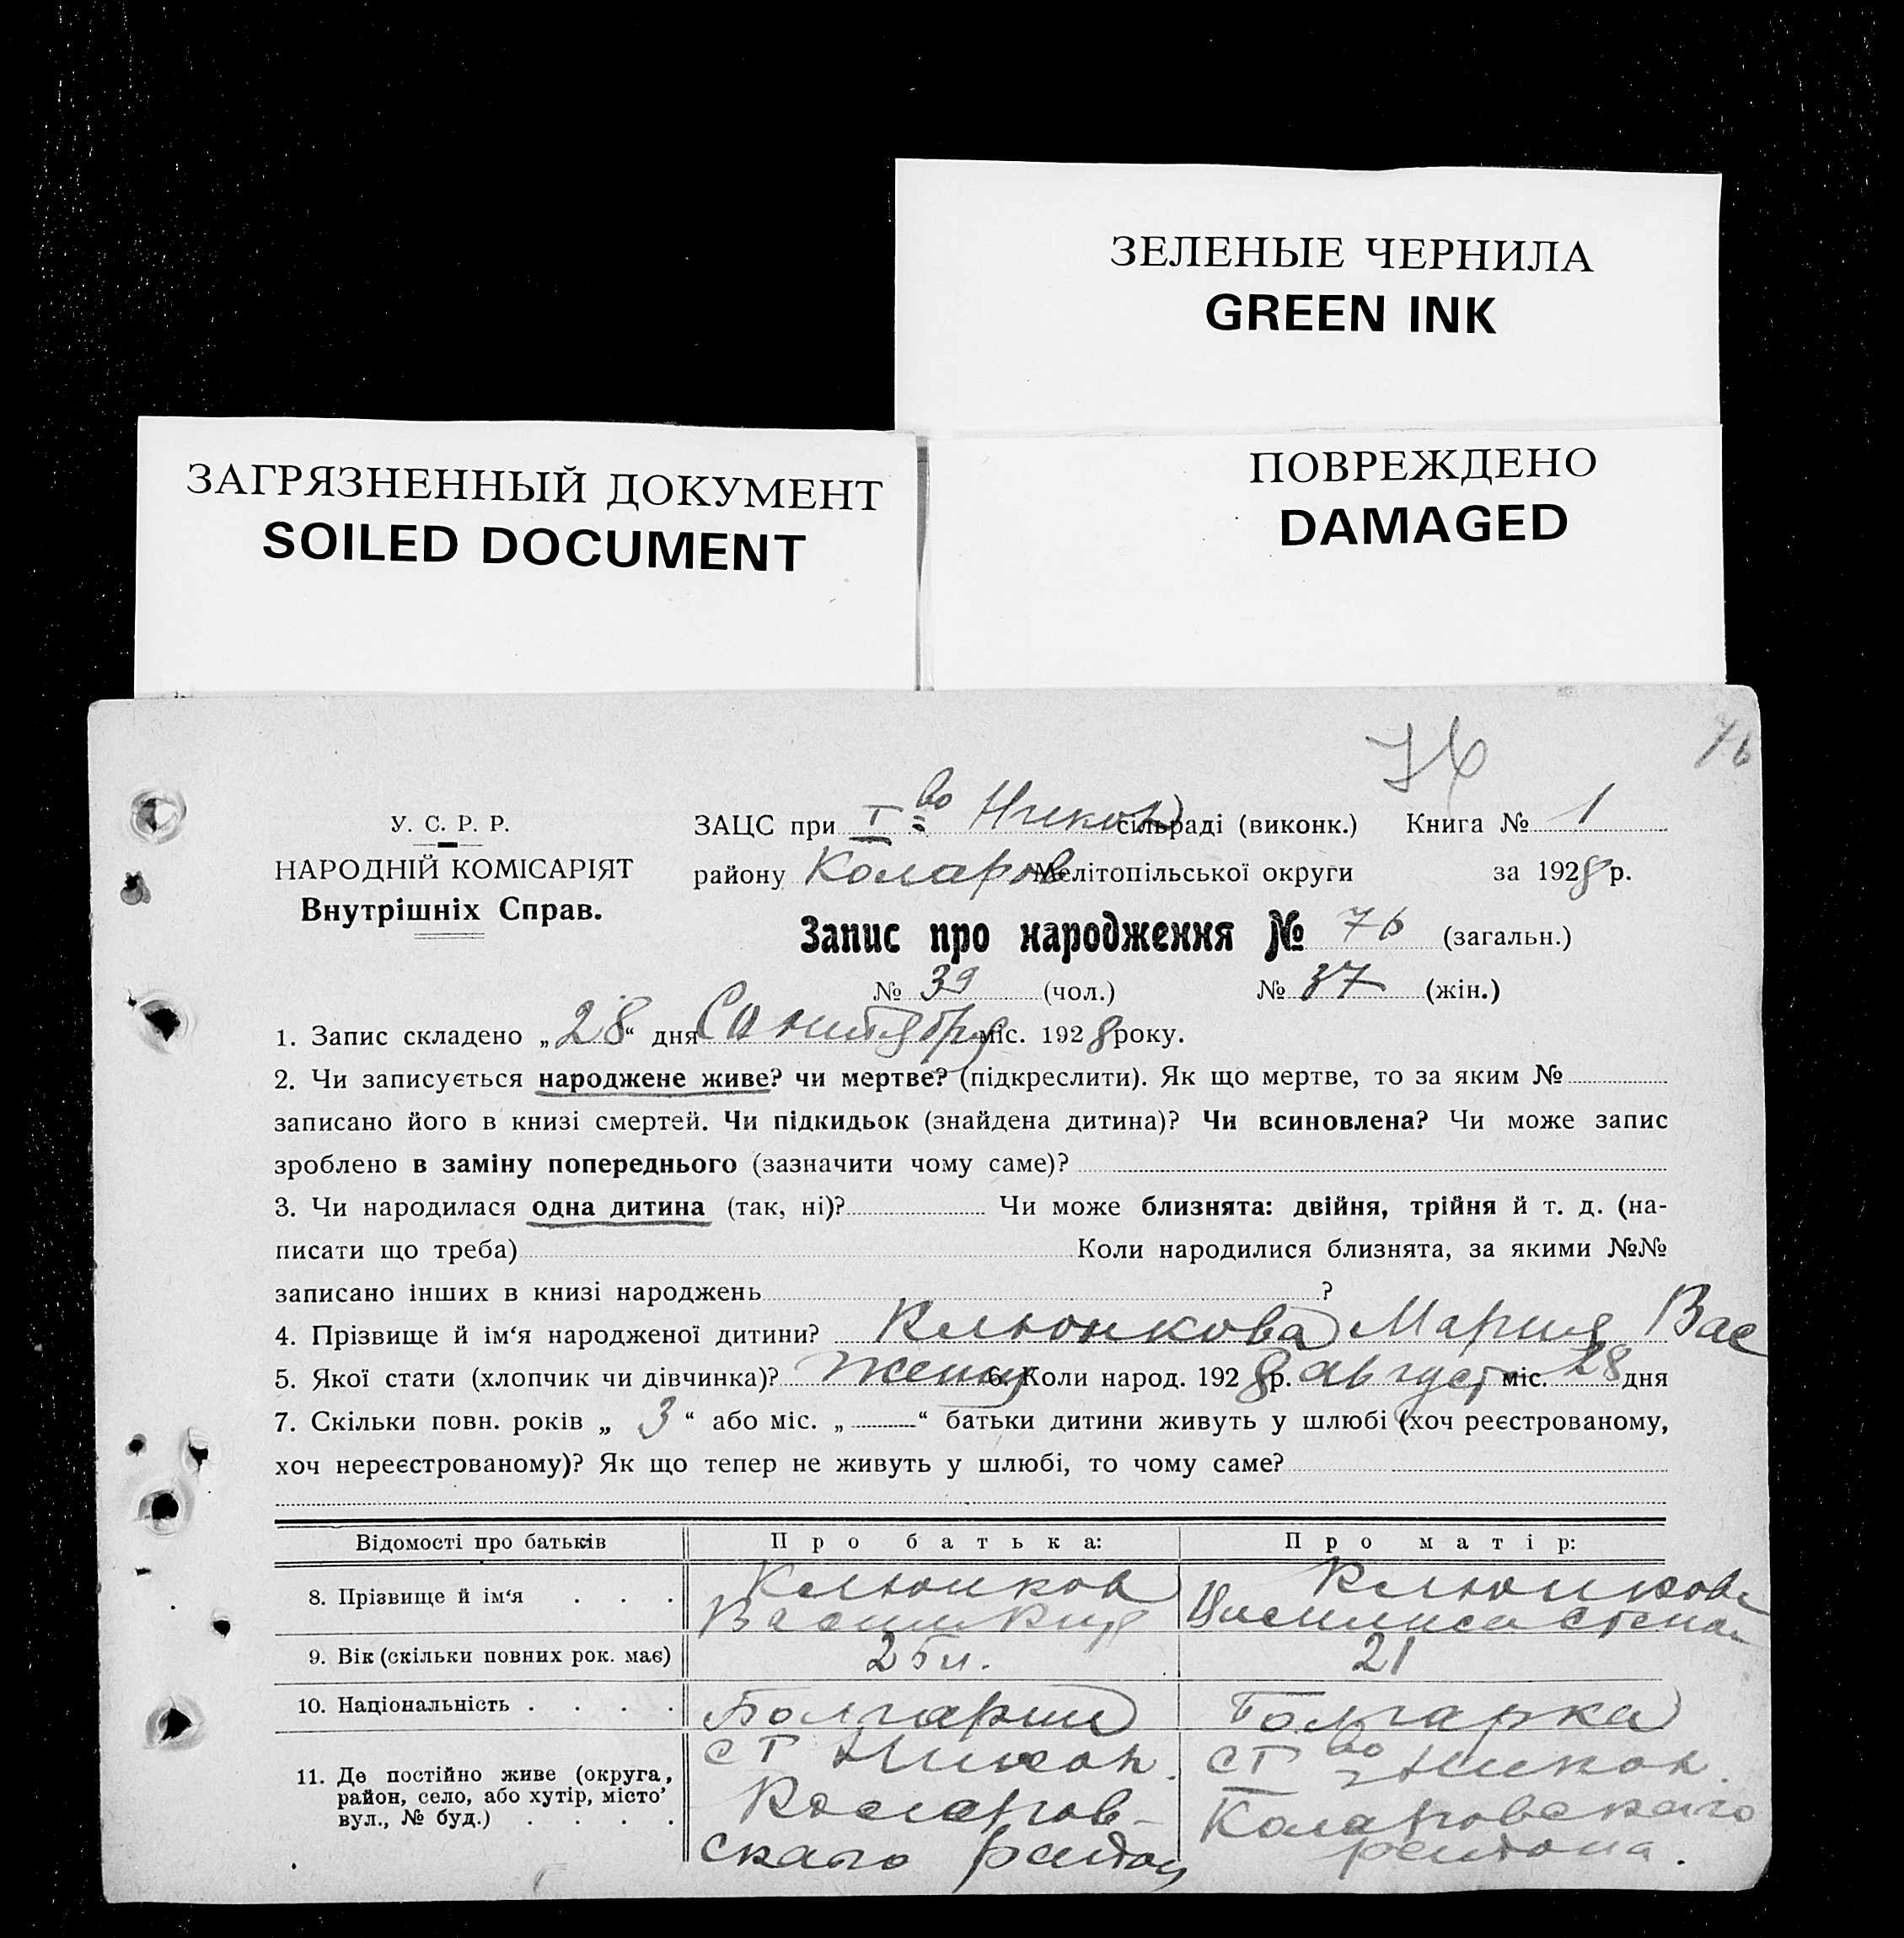 ЗЕЛЕНЫЕ ЧЕРНИЛА
GREEN INK
ЗАГРЯЗНЕННЫЙ ДОКУМЕНТ
SOILED DOCUMENT
ПОВРЕЖДЕНО
DAMAGED
76
76
У. С. Р. Р.
НАРОДНІЙ КОМІСАРІЯТ
Внутрішніх Справ.
ЗАЦС при I во Никол сільраді (виконк.) Книга № 1
району Коларов Мелітопільської округи за 1928 р.
Запис про народження № 76 (загальн.)
№ 39 (чол.) № 37 (жін.)
1. Запис складено „28“ дня Сентября міс. 1928 року.
2. Чи записується народжене живе? чи мертве? (підкреслити). Як що мертве, то за яким №
записано його в книзі смертей. Чи підкидьок (знайдена дитина)? Чи всиновлена? Чи може запис
зроблено в заміну попереднього (зазначити чому саме)?
3. Чи народилася одна дитина (так, ні)? Чи може близнята: двійня, трійня й т. д. (на-
писати що треба) Коли народилися близнята, за якими №№
записано інших в книзі народжень ?
4. Прізвище й ім‘я народженої дитини? Клюнкова Мария Вас
5. Якої стати (хлопчик чи дівчинка)? 6. Коли народ. 1928 р. август міс. 28 дня
7. Скільки повн. років „ 3 “ або міс. „ “ батьки дитини живуть у шлюбі (хоч реєстрованому,
хоч нереєстрованому)? Як що тепер не живуть у шлюбі, то чому саме?
Відомості про батьків Про батька: Про матір:
8. Прізвище й ім‘я . . . Клюнков Клюнкова
Василиса Степан
9. Вік (скільки повних рок. має) 25 21
10. Національність . . . . Болгарин Болгарка
11. Де постійно живе (округа,
район, село, або хутір, місто
вул., № буд.) . . . .
Никол.
Коларов-
скаго района
во Никол.
Коларовскаго
района.